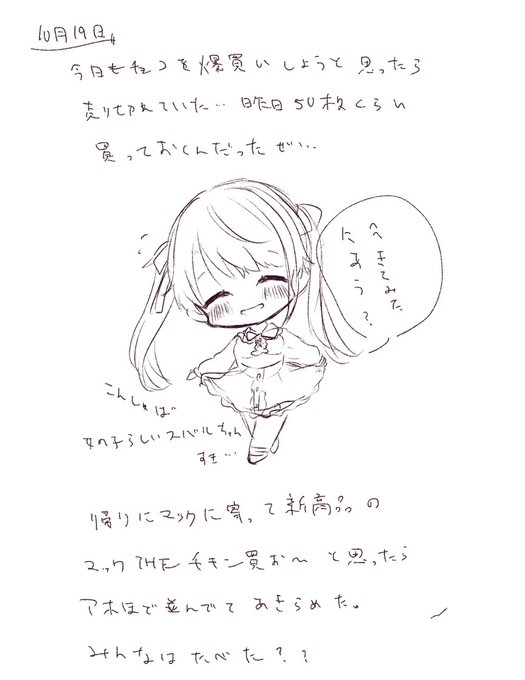 10月19日
今日もチョコを爆買いしようと思ったら
売り切れていた‥昨日50枚くらい
買っておくんだったぜぃ…
へへきてみた
にあう?
女の子らしいスバルちゃん
すき…
帰りにマックに寄って新商品の
マックTHEチキン買お〜と思ったら
アホほど並んでてあきらめた。
みんなはたべた??